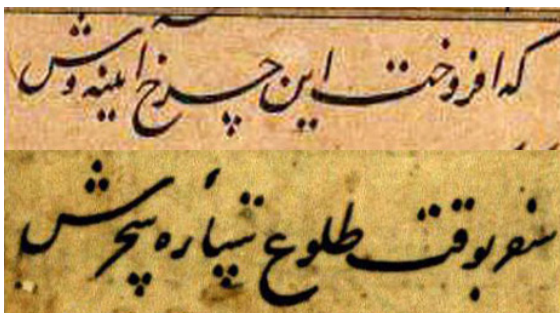 که افروخت این چرخ آیینه وش
سفر بوقت طلوع ستاره سحرش